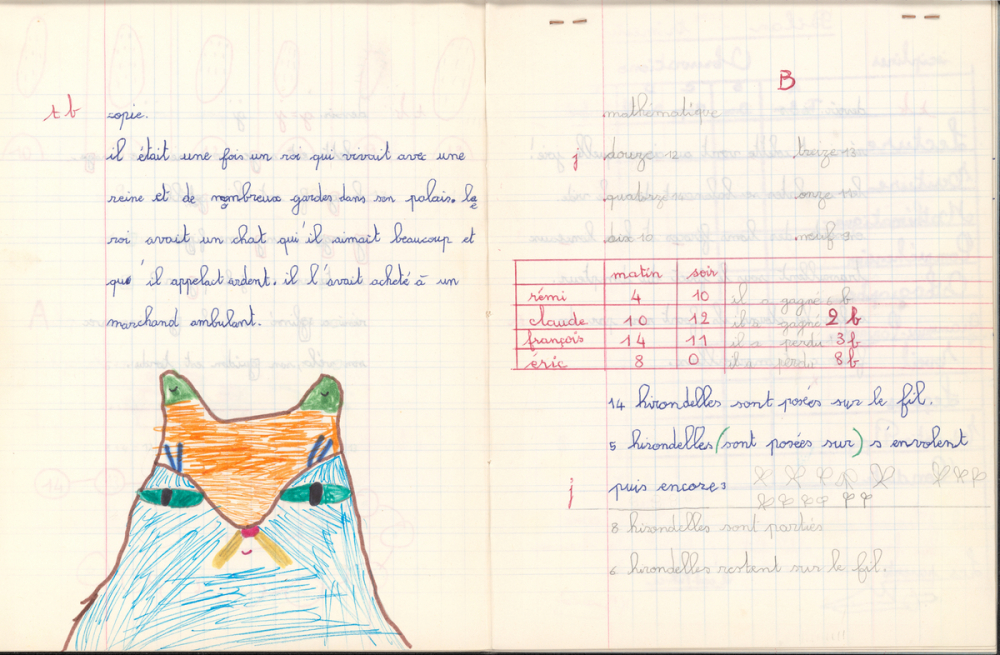 t b
copie.
il était une fois un roi qui vivait avec une
reine et de nombreux gardes dans son palais. le
roi avait un chat qui'il aimait beaucoup et
que' il appelait ardent. il l'avait acheté à un
marchand ambulant.
B
mathématique
j douze 12 treize 13
quatorze 14 onze 11
dix 10 neuf 9
matin soir
rémi 4 10 il a gagné 6 b
claude 10 12 il a gagné 2 b
françois 14 11 il a perdu 3 b
éric 8 0 il a perdu 8 b
14 hirondelles sont posées sur le fil.
5 hirondelles (sont posées sur) s'envolent
j puis encore 3
8 hirondelles sont parties
6 hirondelles restent sur le fil.